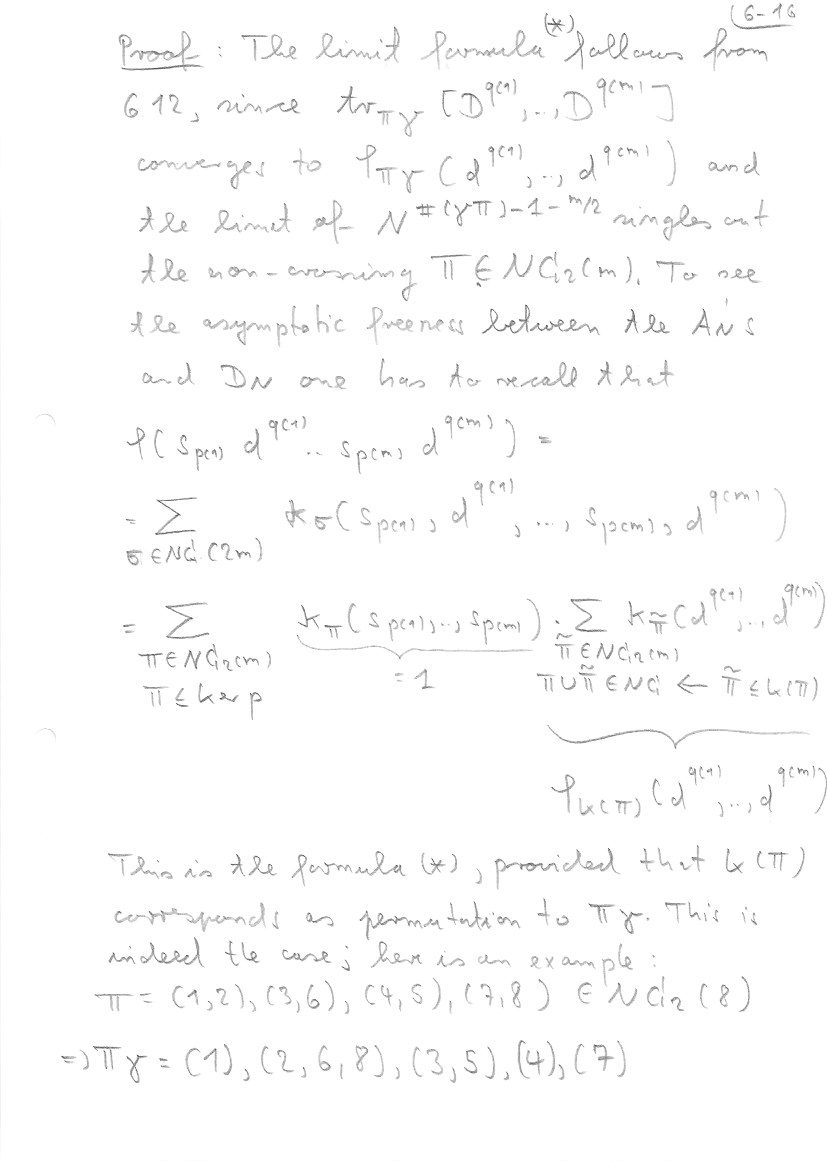 6-16
Proof: The limit formula (*) follows from
6.12, since tr_{πγ} [D^{q(1)},..,D^{q(m)}]
converges to φ_{πγ} (d^{q(1)},..,d^{q(m)}) and
the limit of N^{#(γπ)-1-m/2} singles out
the non-crossing π ∈ NC₂(m). To see
the asymptotic freeness between the A_N's
and D_N one has to recall that
φ(s_{p(1)} d^{q(1)} .. s_{p(m)} d^{q(m)}) =
= ∑_{σ∈NC(2m)} k_σ(s_{p(1)}, d^{q(1)}, ..., s_{p(m)}, d^{q(m)})
= ∑_{π∈NC₂(m), π≤ker p} k_π(s_{p(1)},..,s_{p(m)}) · ∑_{π̃∈NC₂(m), π∪π̃∈NC ← π̃≤k(π)} k_π̃(d^{q(1)},..,d^{q(m)})
= 1
φ_{k(π)} (d^{q(1)},..,d^{q(m)})
This is the formula (*), provided that k(π)
corresponds as permutation to πγ. This is
indeed the case; here is an example:
π = (1,2), (3,6), (4,5), (7,8) ∈ NC₂(8)
⇒ πγ = (1), (2,6,8), (3,5), (4), (7)